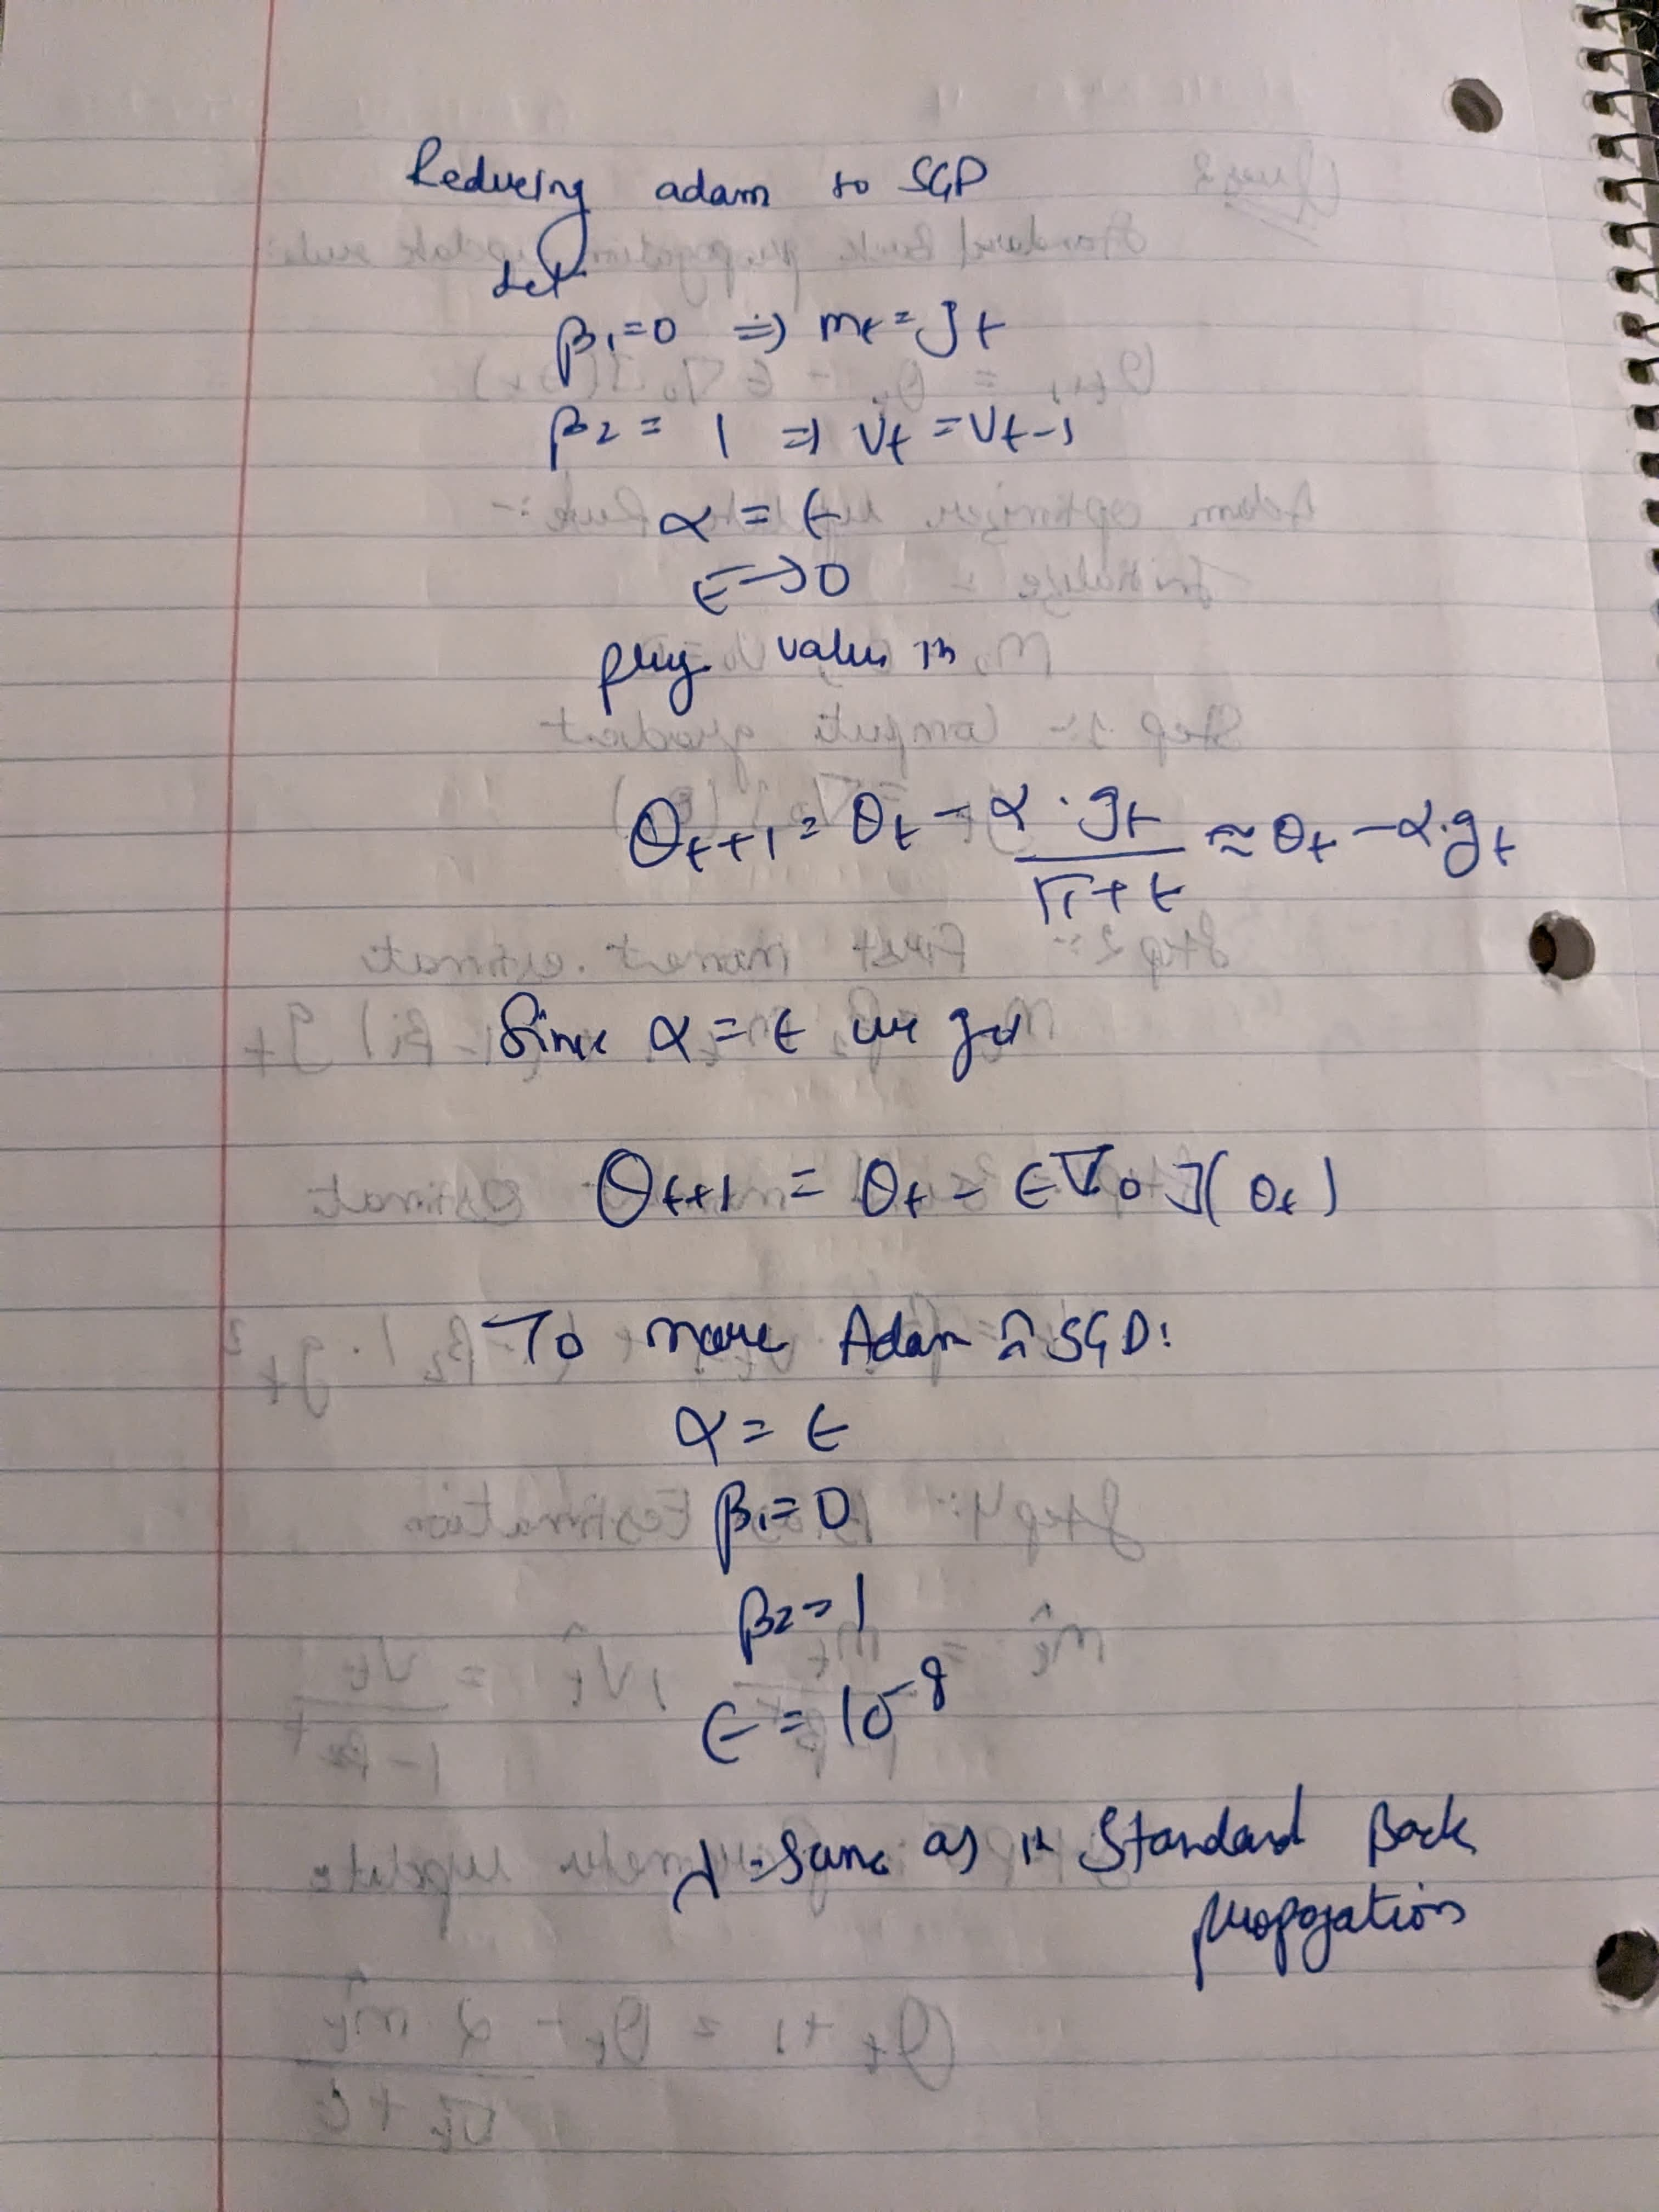 Reducing adam to SGD
Set
β₁=0 ⇒ mt = gt
β2 = 1 ⇒ Vt = Vt-1
α = ϵ
ϵ→0
plug value in
θt+1 = θt - α·gt / √1+ϵ ≈ θt - α·gt
Since α = ϵ we get
θt+1 = θt - ϵ∇θ J(θt)
To Adam ≈ SGD:
α = ϵ
β₁=0
β2=1
ϵ = 10⁻⁸
= Same as in Standard Back
propogation